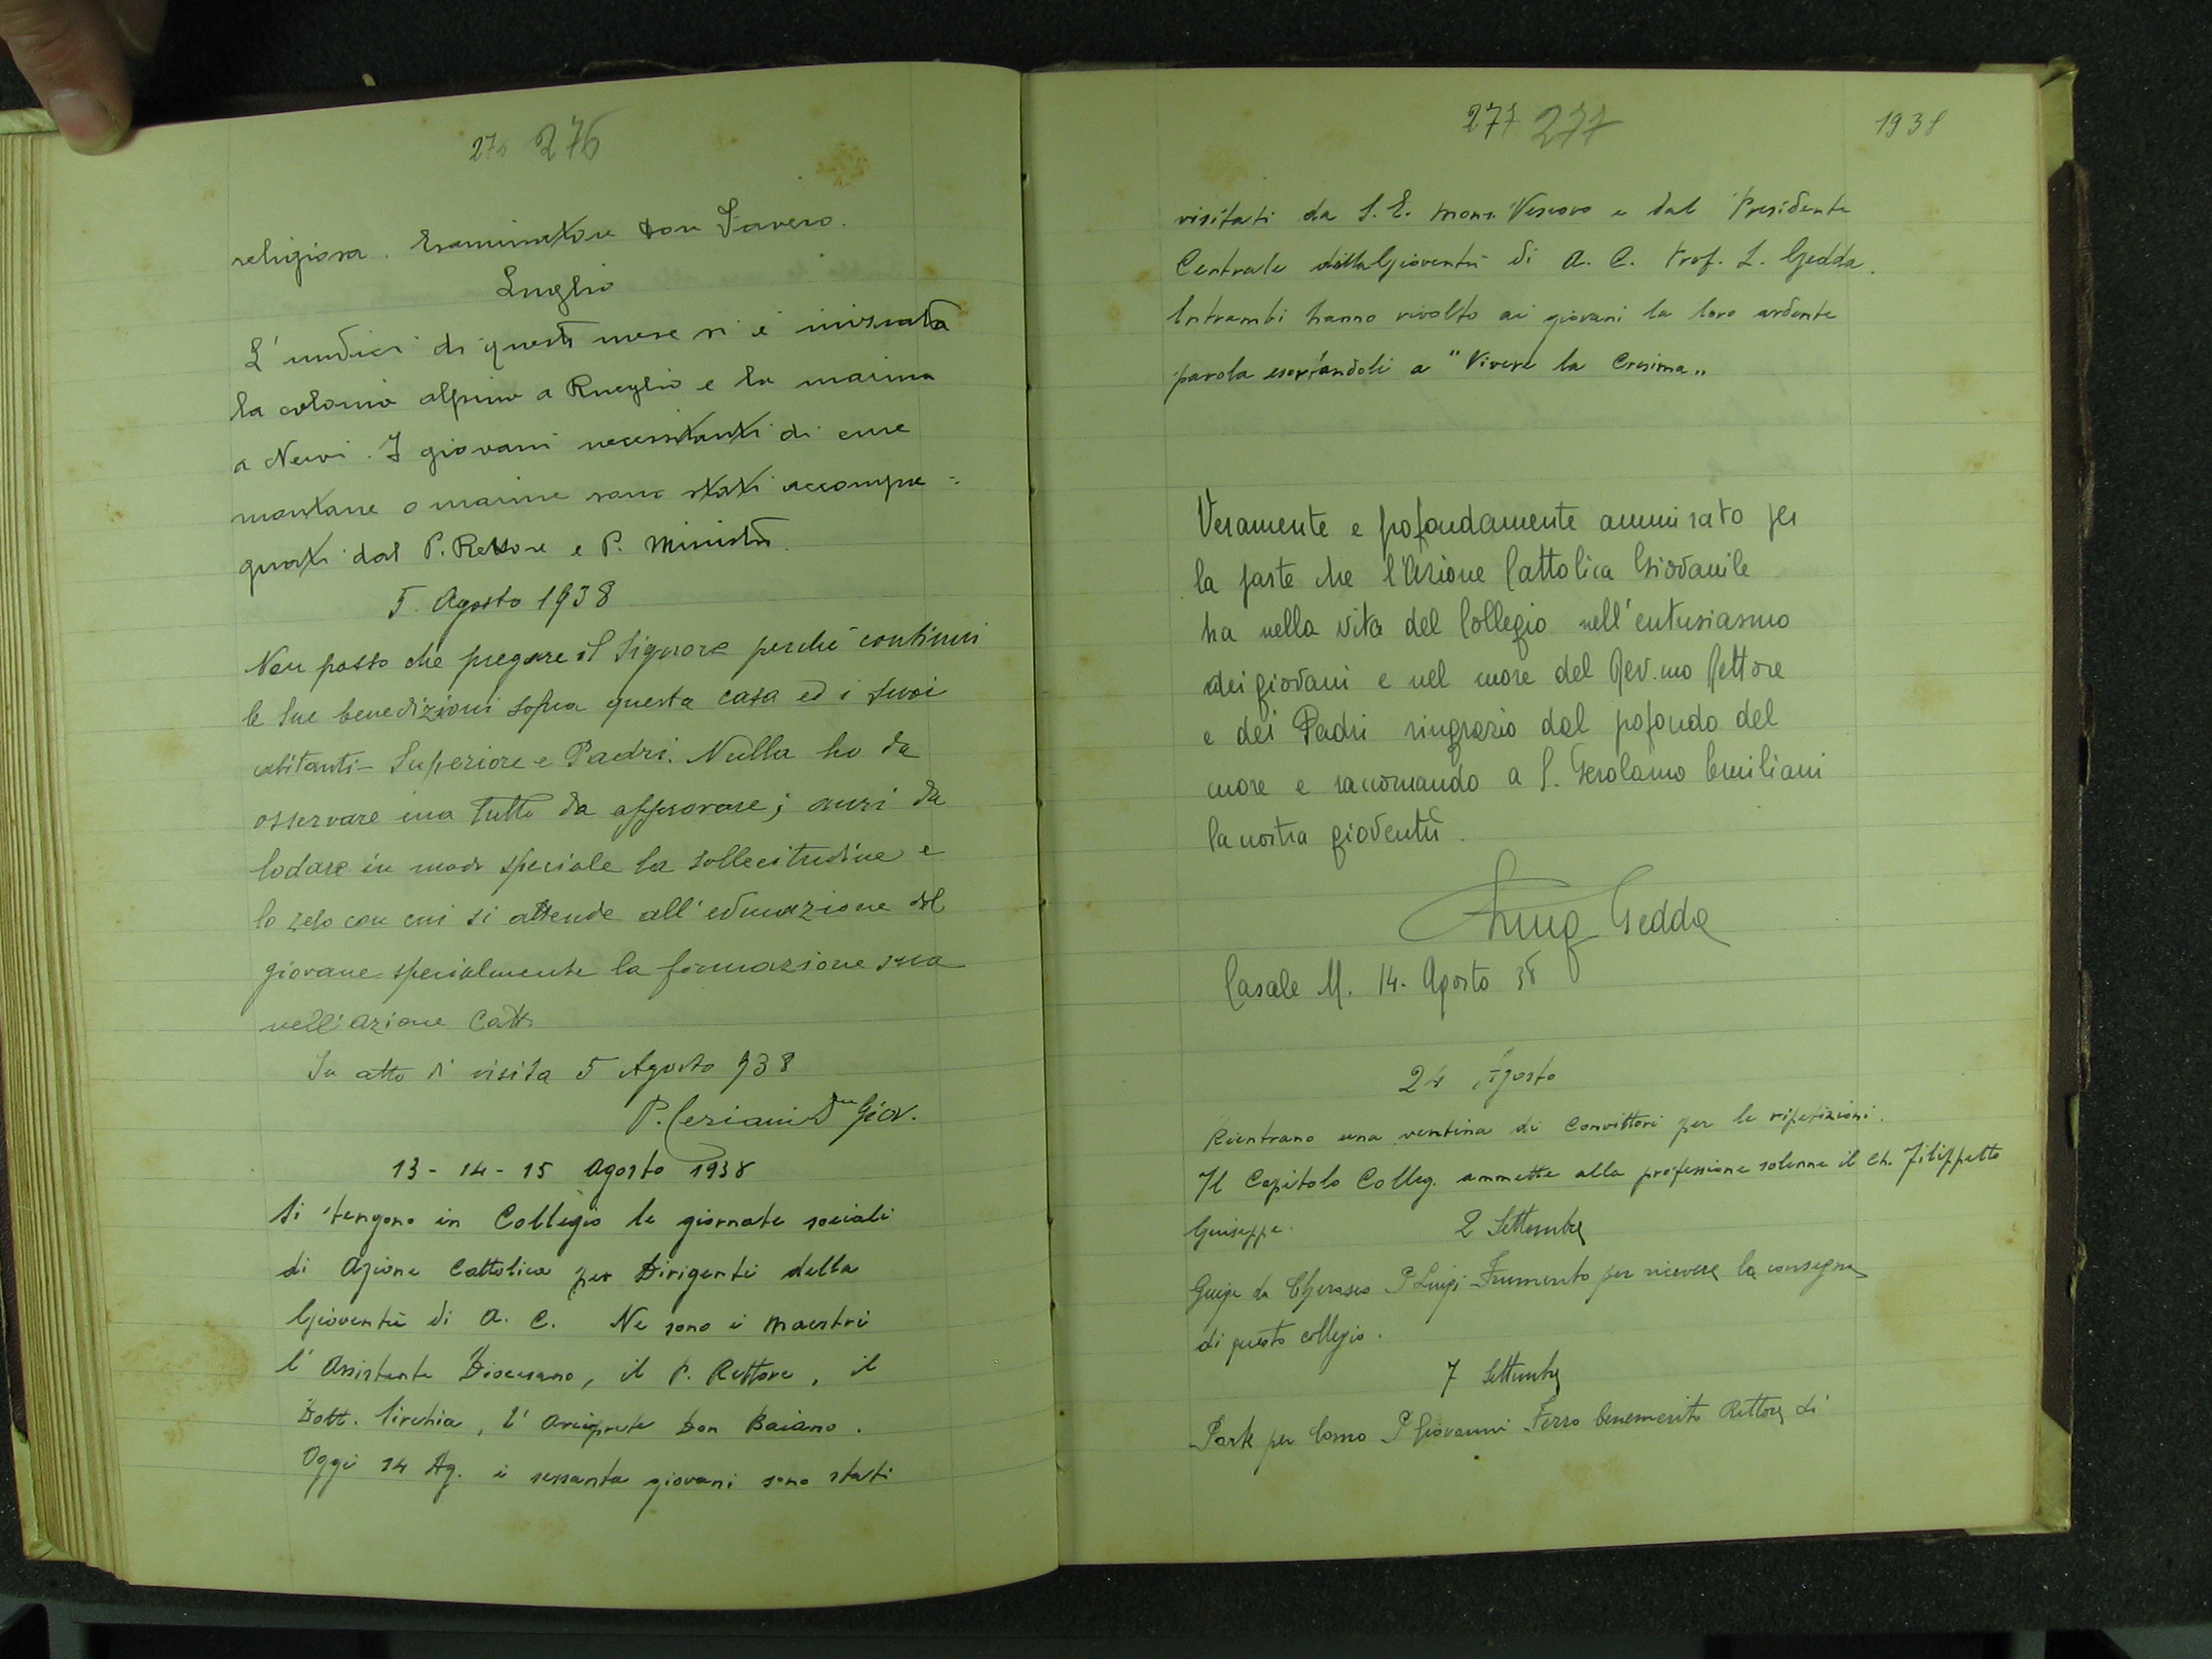 276 276
religiosa. Esaminatore Don Saverio.
Luglio
L'undici di questo mese si è iniziata
la colonia alpina a Rueglio e la marina
a Nervi. I giovani necessitanti di cure
montane o marine sono stati accompa=
gnati dal P. Rettore e P. Ministro.
5. Agosto 1938
Non posso che pregare il Signore perchè continui
le sue benedizioni sopra questa casa ed i suoi
abitanti - Superiore e Padri. Nulla ho da
osservare ma tutto da approvare; anzi da
lodare in modo speciale la sollecitudine e
lo zelo con cui si attende all'educazione del
giovane specialmente la formazione sua
nell'azione Catt.
In atto di visita 5 Agosto 938
P. Ceriani D. Giov.
13 - 14 - 15 Agosto 1938
Si tengono in Collegio le giornate sociali
di Azione Cattolica per Dirigenti della
Gioventù di A. C. Ne sono i maestri
l'Assistente Diocesano, il P. Rettore, il
Dott. Sirchia, l'Arciprete Don Baiano.
Oggi 14 Ag. i sessanta giovani sono stati
277 277
1938
visitati da S. E. Mons. Vescovo e dal Presidente
Centrale della Gioventù di A. C. Prof. L. Gedda.
Entrambi hanno rivolto ai giovani la loro ardente
parola esortandoli a "Vivere la Cresima"
Veramente e pofondamente ammirato per
la parte che l'Azione Cattolica Giovanile
ha nella vita del Collegio nell'entusiasmo
dei giovani e nel cuore del Rev.mo Rettore
e dei Padri ringrazio dal pofondo del
cuore e raccomando a S. Gerolamo Emiliani
la nostra gioventù.
Luigi Gedda
Casale M. 14. Agosto 38
24 Agosto
Rientrano una ventina di Convittori per le ripetizioni.
Il Capitolo Colleg. ammette alla professione solenne il Ch. Filippetto
Giuseppe.
2 Settembre
Giunge da Cherasco P Luigi Frumento per ricevere la consegna
di questo collegio.
7 Settembre
Parte per Como P Giovanni Ferro benemerito Rettore di